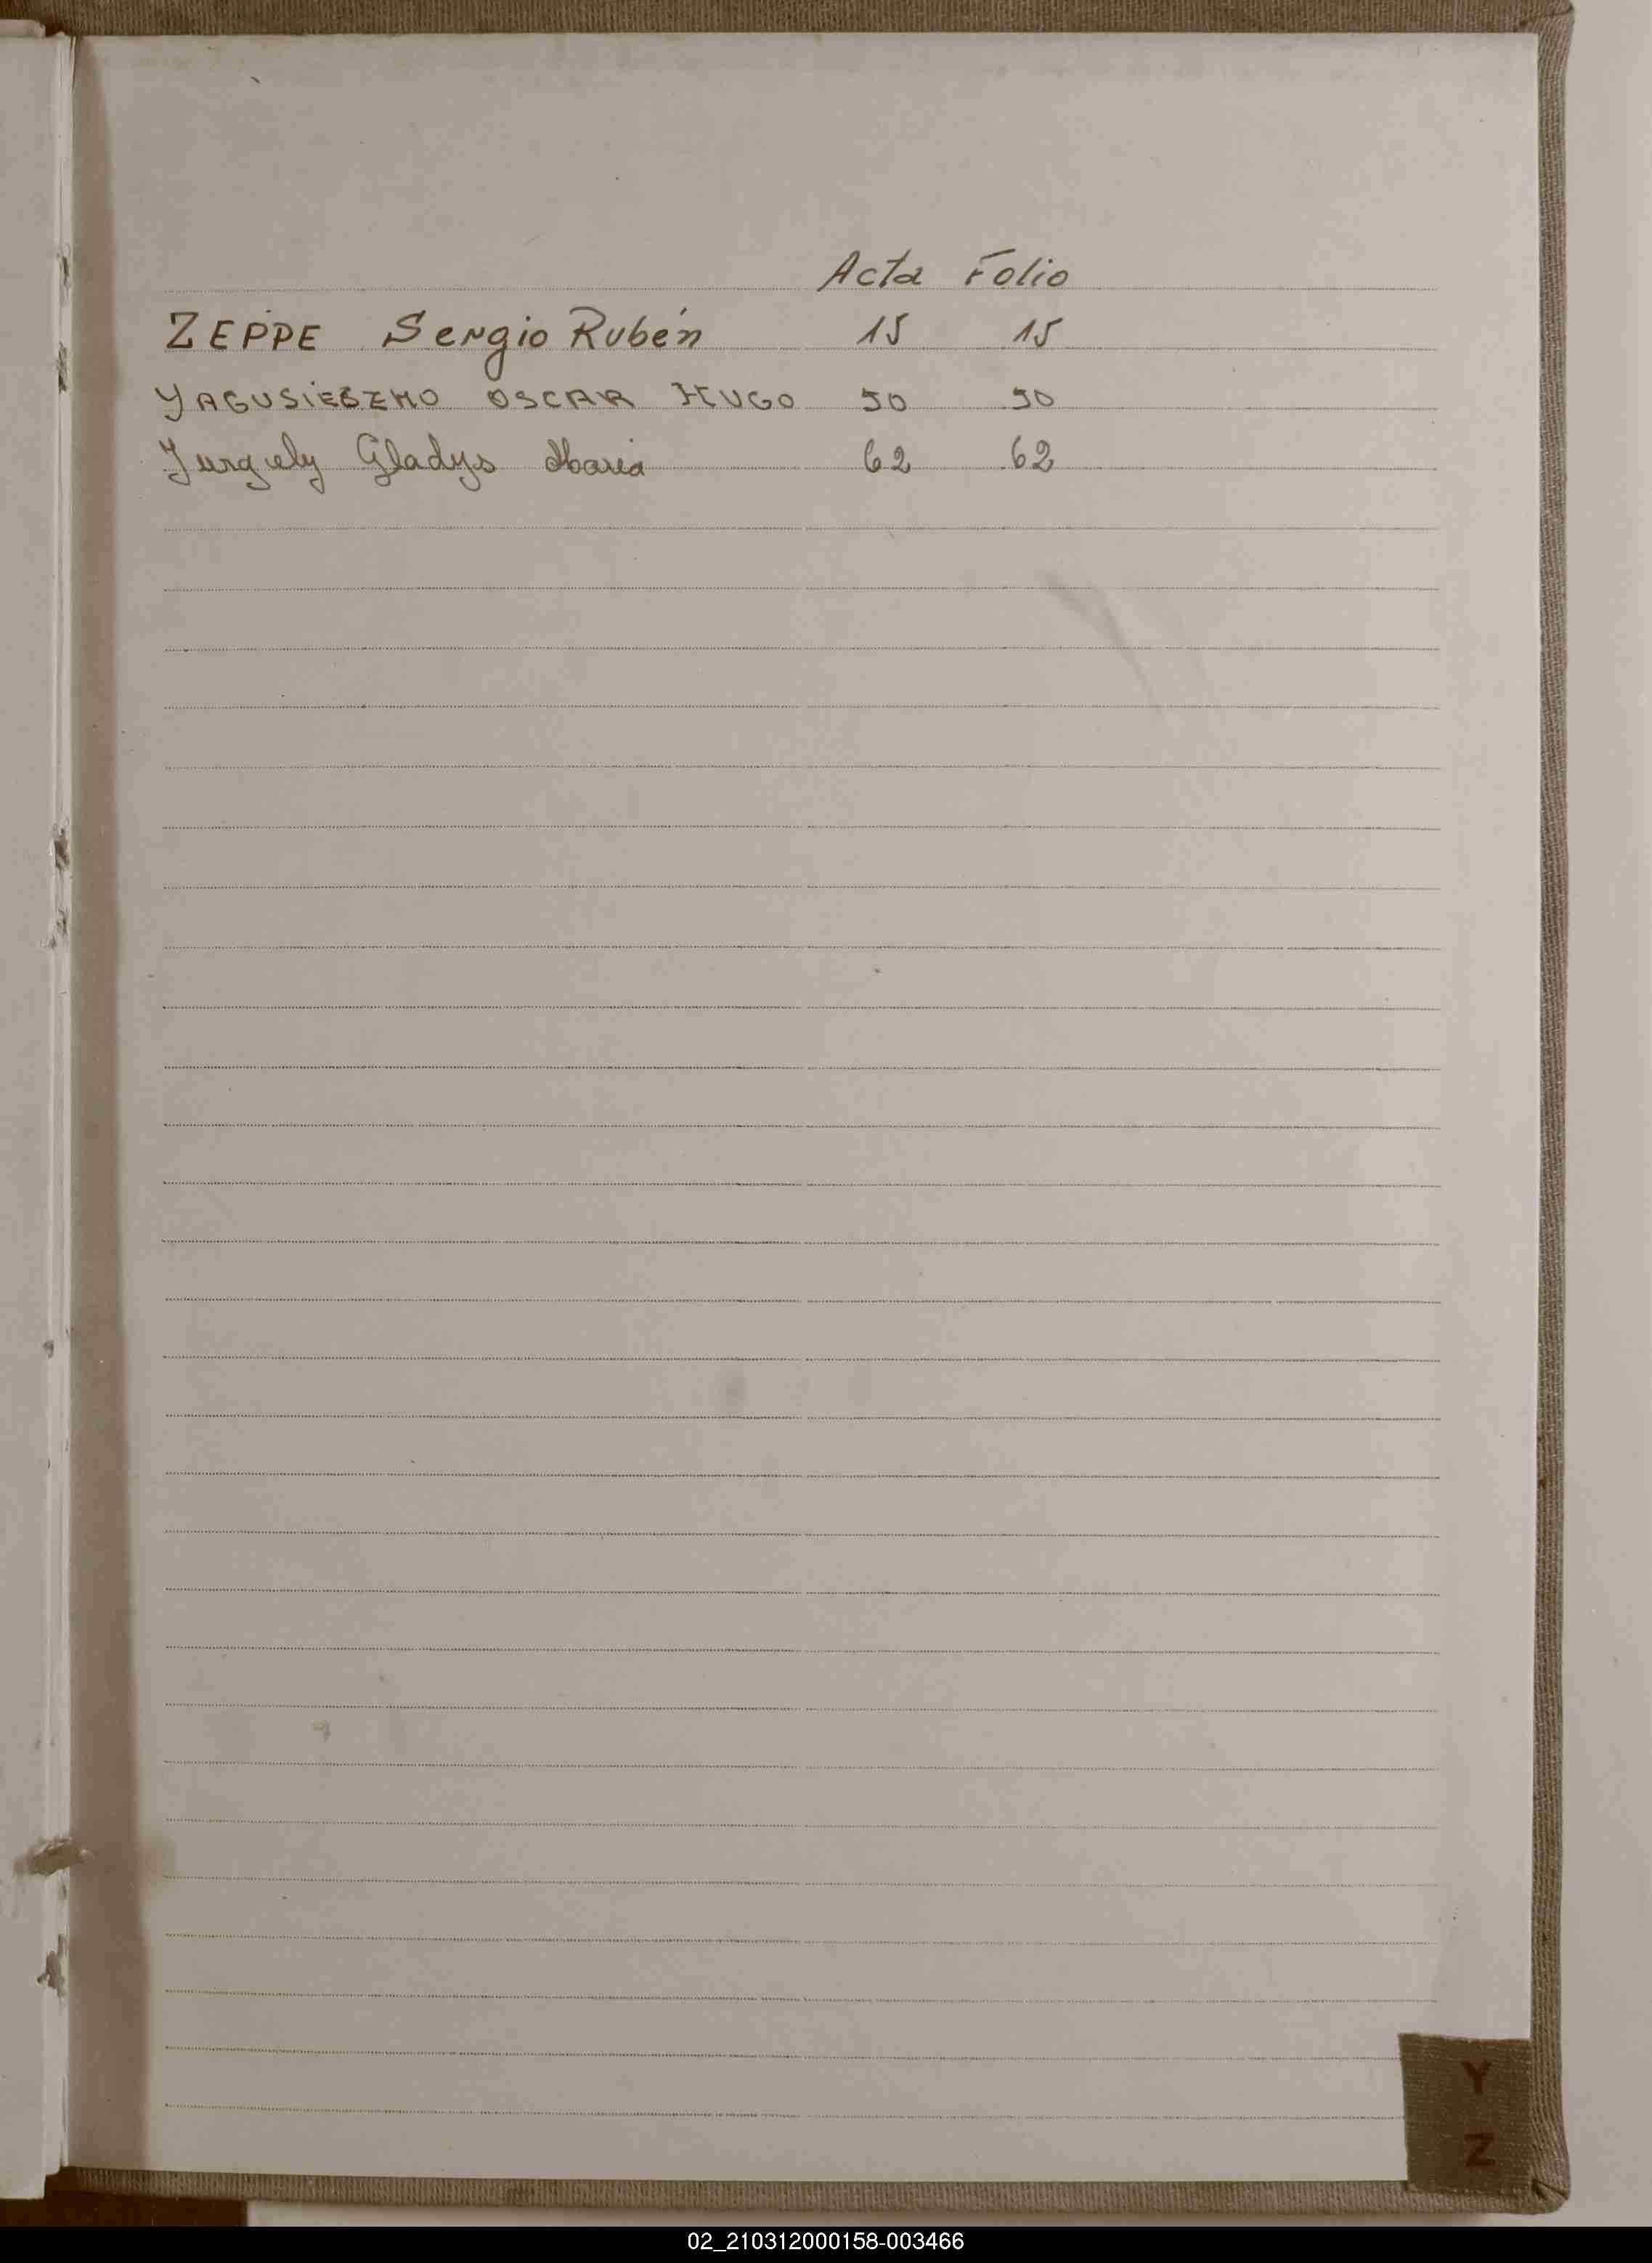 Acta Folio
ZEPPE Sergio Rubén 15 15
YAGUSIEBZKO OSCAR HUGO 50 50
Jurgiely Gladys Maria 62 62
Y
Z
02_210312000158-003466